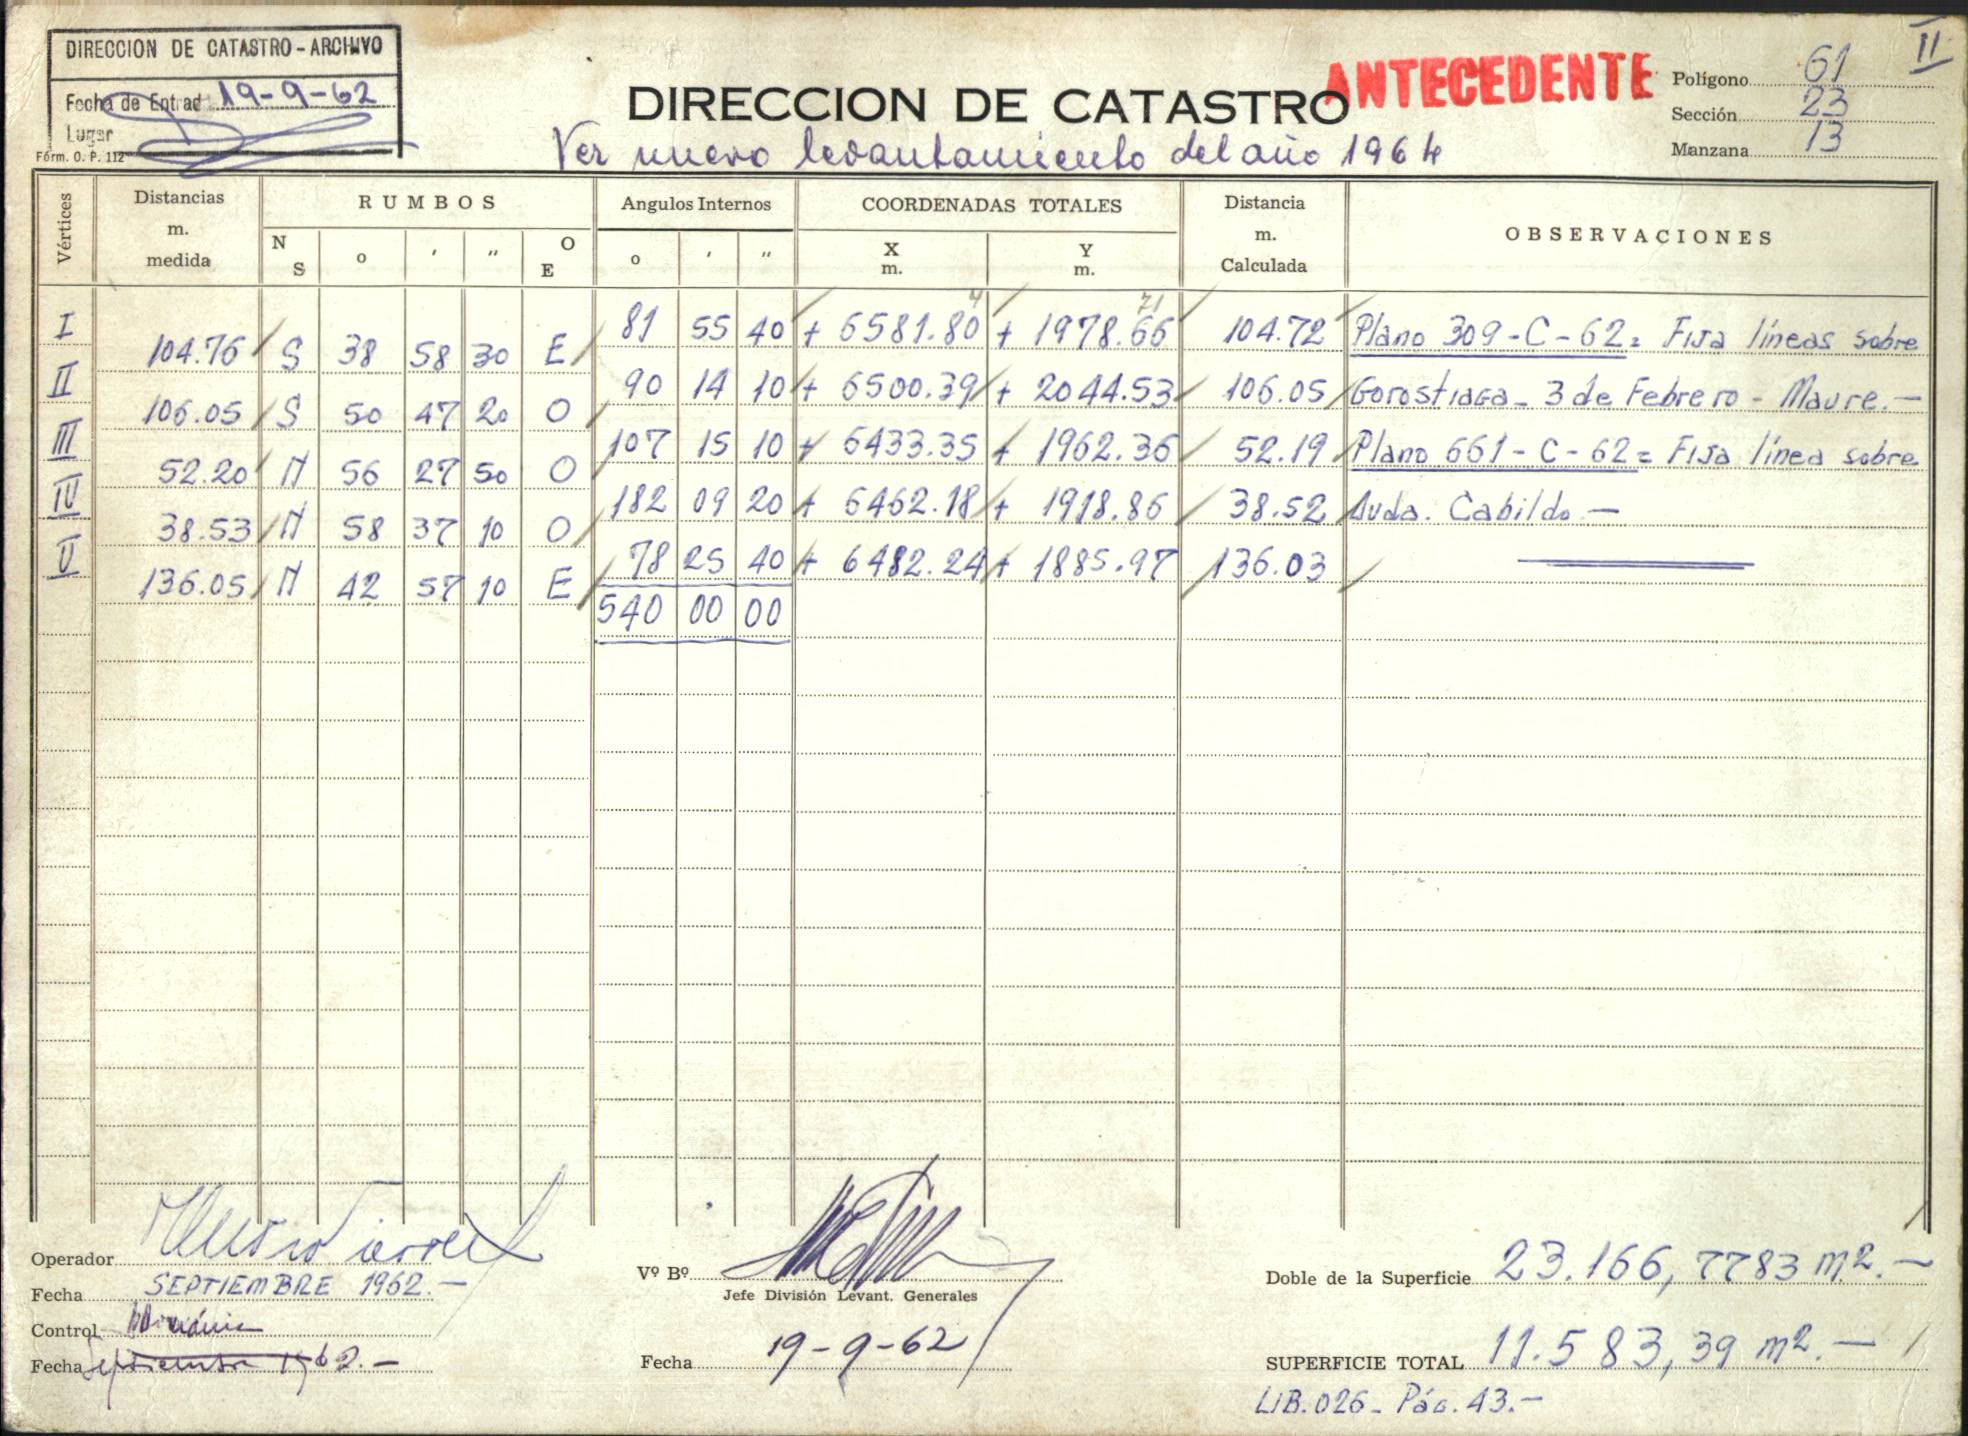 DIRECCION DE CATASTRO - ARCHIVO
Fecha de Entrad 19-9-62
Lugar
Fórm. O. P. 112
DIRECCION DE CATASTRO
ANTECEDENTE
II
Polígono 61
Sección 23
Manzana 13
Ver nuevo levantamiento del año 1964
Vértices Distancias m. medida RUMBOS Angulos Internos COORDENADAS TOTALES Distancia m. Calculada OBSERVACIONES
N S o ' " O E o ' " X m. Y m.
4 71
I 104.76 S 38 58 30 E 81 55 40 + 6581.80 + 1978.66 104.72 Plano 309-C-62= Fija líneas sobre
II 106.05 S 50 47 20 O 90 14 10 + 6500.39 + 2044.53 106.05 Gorostiaga - 3 de Febrero - Maure.-
III 52.20 N 56 27 50 O 107 15 10 + 6433.35 + 1962.36 52.19 Plano 661-C-62= Fija línea sobre
IV 38.53 N 58 37 10 O 182 09 20 + 6462.18 + 1918.86 38.52 Avda. Cabildo.-
V 136.05 N 42 57 10 E 78 25 40 + 6482.24 + 1885.97 136.03
540 00 00
Operador
Fecha SEPTIEMBRE 1962.-
Control
Fecha Septiembre 1962.-
Vº Bº
Jefe División Levant. Generales
Fecha 19-9-62
Doble de la Superficie 23.166,7783 m2.-
SUPERFICIE TOTAL 11.583,39 m2.-
LIB.026- Pág. 43.-